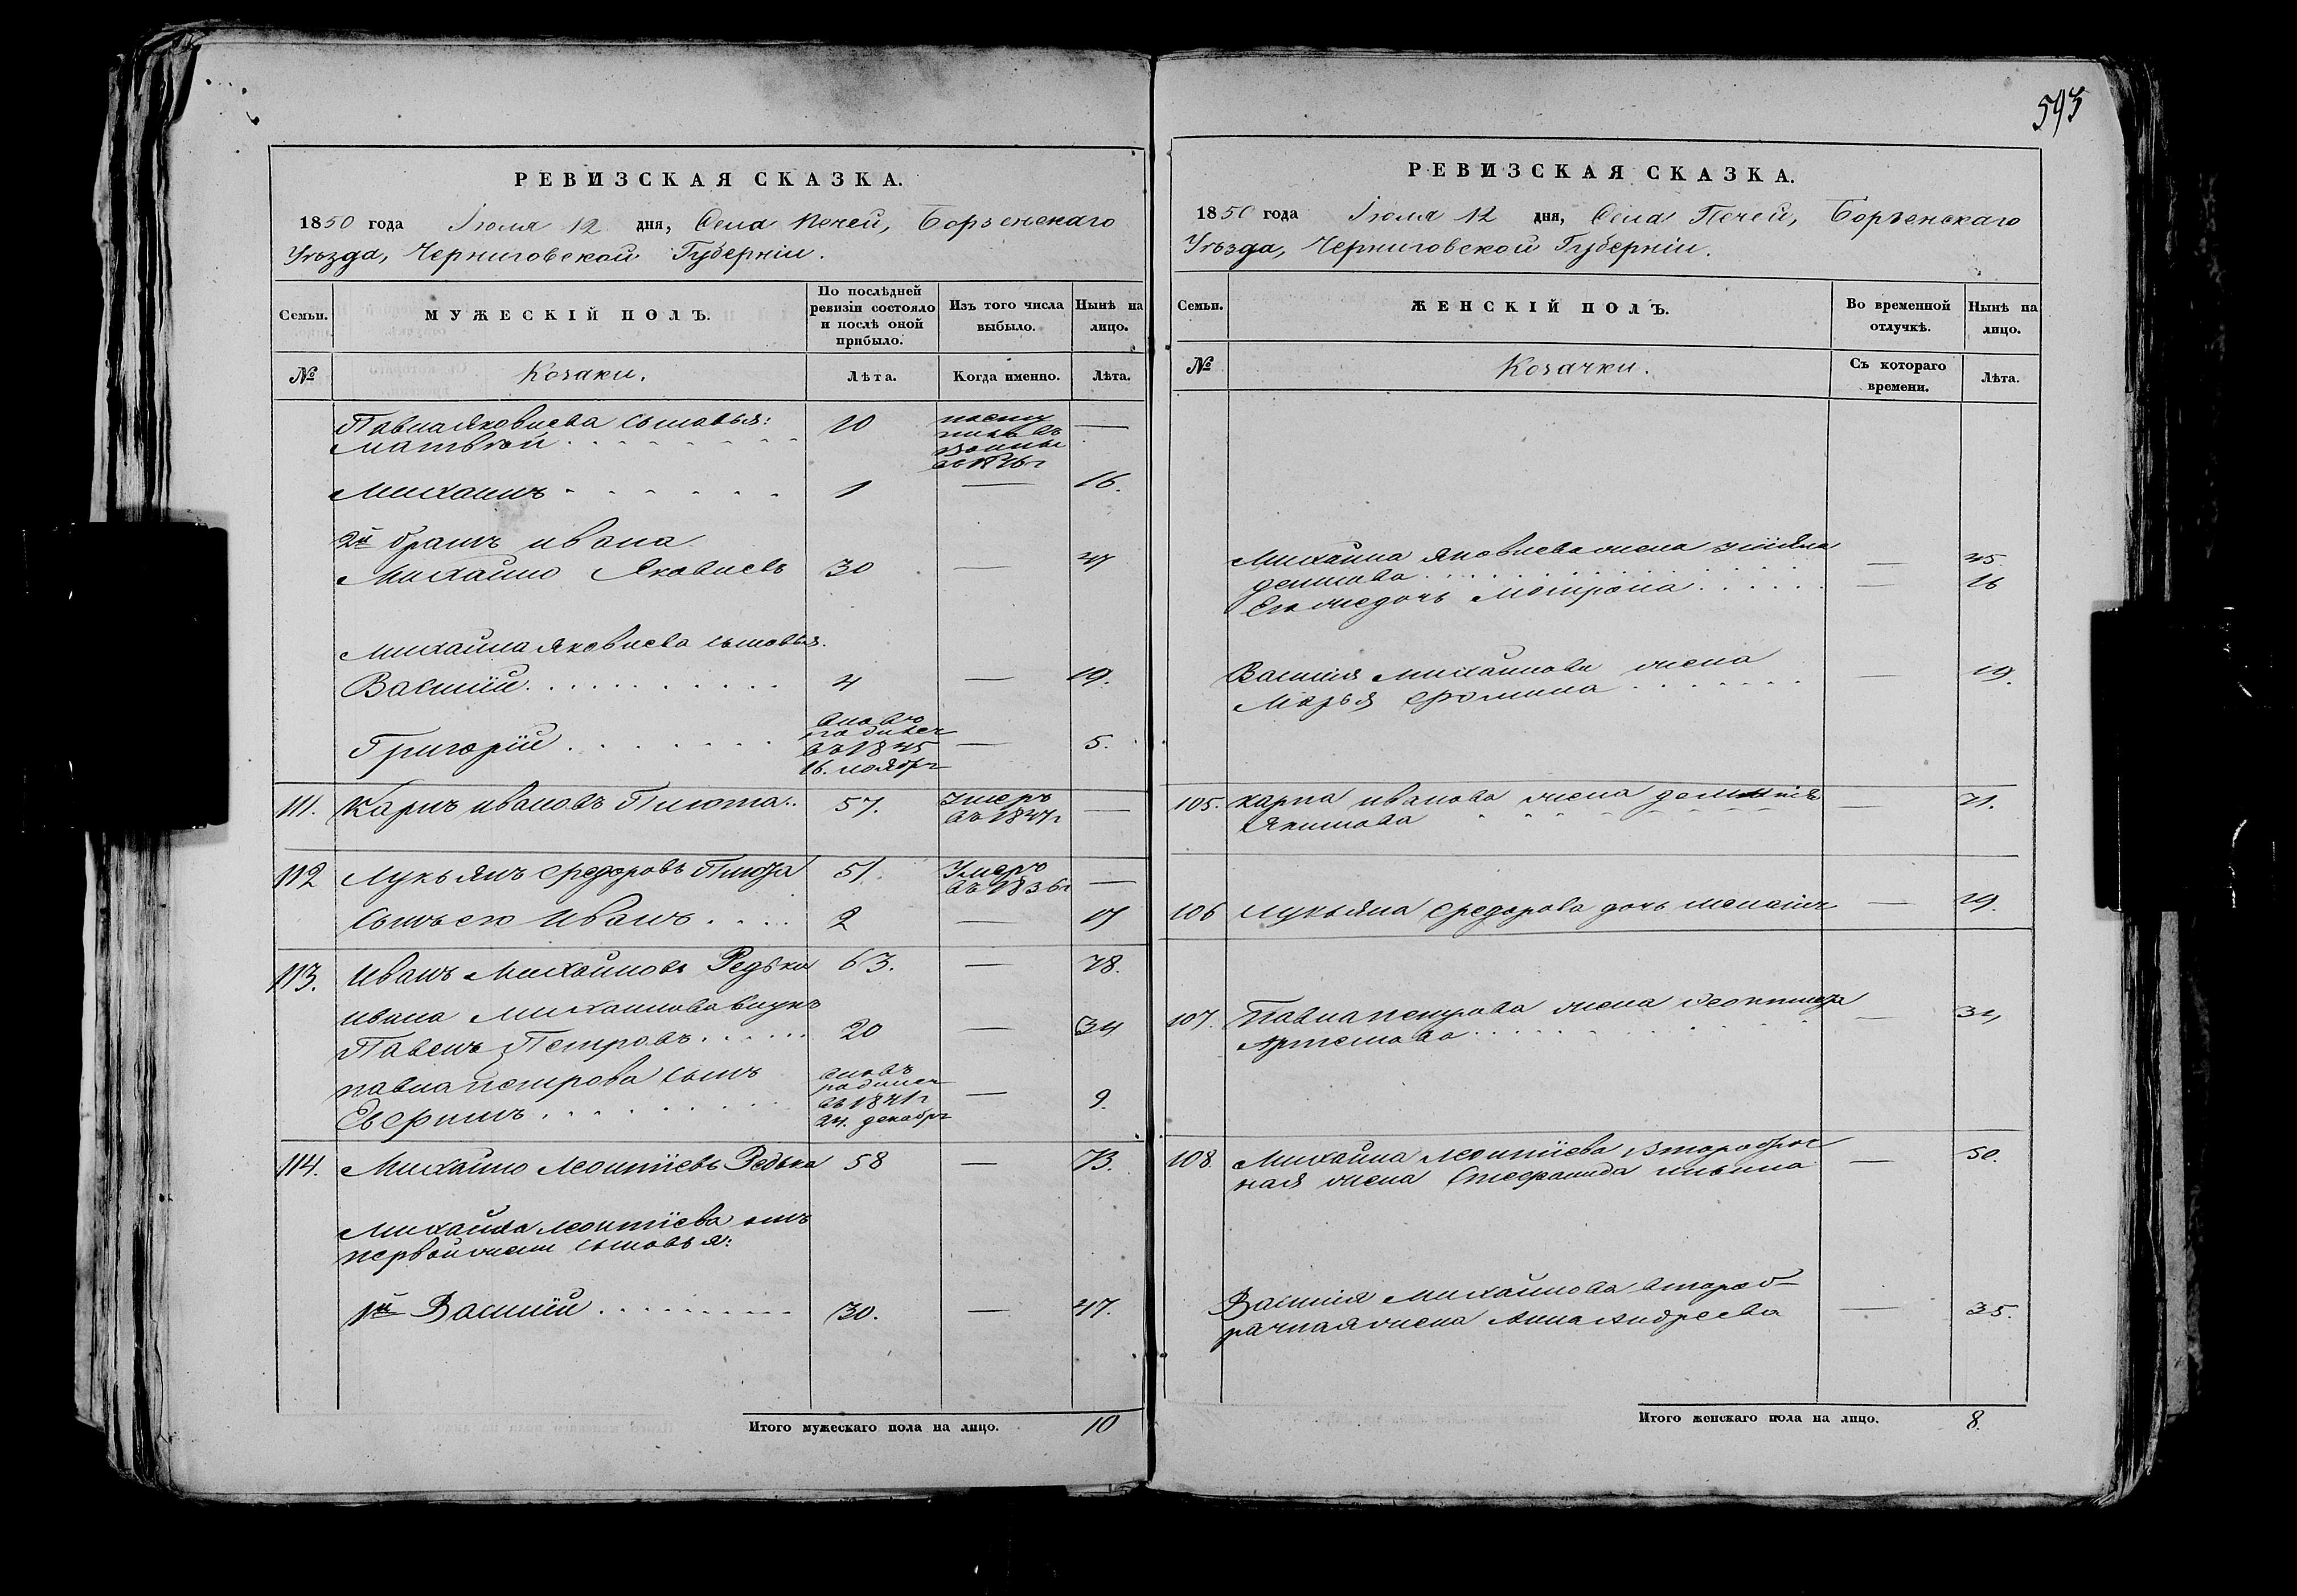 593
РЕВИЗСКАЯ СКАЗКА.
1850 года Іюля 12 дня, Села Печей, Борзенскаго
Уѣзда, Черниговской Губерніи.
Семьи.
МУЖЕСКІЙ ПОЛЪ.
По послѣдней ревизіи состояло и послѣ оной прибыло.
Изъ того числа выбыло.
Нынѣ на лицо.
№
Козаки.
Лѣта.
Когда именно.
Лѣта.
Павла Яковлева сыновья:
Матвѣй 10 —
Михаилъ 1 — 16.
2й братъ Ивана
Михайло Яковлевъ 30 —
Михайла Яковлева сыновья.
Василій 4 — 19.
Григорій вновь родился въ 1845 16. ноября — 5.
111. Карпъ Ивановъ Плюта 57. Умеръ въ 1847г —
112 Лукьянъ Федоровъ Плюта 51. Умеръ въ 1836г —
Сынъ его Иванъ 2 — 17
113. Иванъ Михайловъ Редька 63. — 78.
Ивана Михайлова внукъ
Павелъ Петровъ 20 — 34
Павла Петрова сынъ
вновь родился въ 1841г декабря — 9.
114. Михайло Леонтіевъ Редька 58 — 73.
Михайла Леонтіева отъ
первой жены сыновья:
1й Василій 30. — 47.
Итого мужескаго пола на лицо. 10
РЕВИЗСКАЯ СКАЗКА.
1850 года Іюля 12 дня, Села Печей, Борзенскаго
Уѣзда, Черниговской Губерніи.
Семьи.
ЖЕНСКІЙ ПОЛЪ.
Во временной отлучкѣ.
Нынѣ на лицо.
№
Козачки.
Съ котораго времени.
Лѣта.
Михайла Яковлева жена — 45.
Его же дочь Мотрона — 16
Василія Михайлова жена
Марья Фомина — 19.
105. Карпа Иванова жена
Якимова — 71.
106 Лукьяна Федорова дочь — 19.
107. Павла Петрова жена
Артемова — 34
108. Михайла Леонтіева второбрач
ная жена Стефанида Ильина — 50.
Василія Михайлова второб-
рачная жена Анна Андреева — 35.
Итого женскаго пола на лицо. 8.